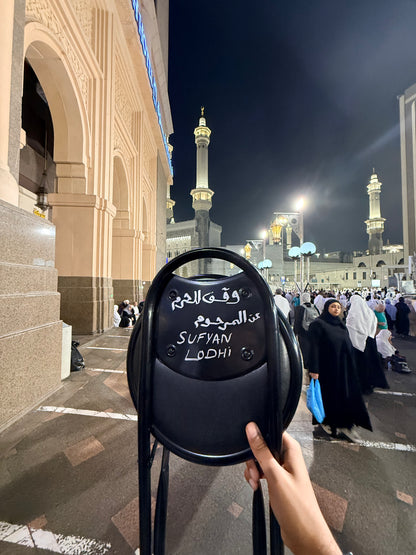 وقف للحرم
عن المرحوم
SUFYAN
LODHI